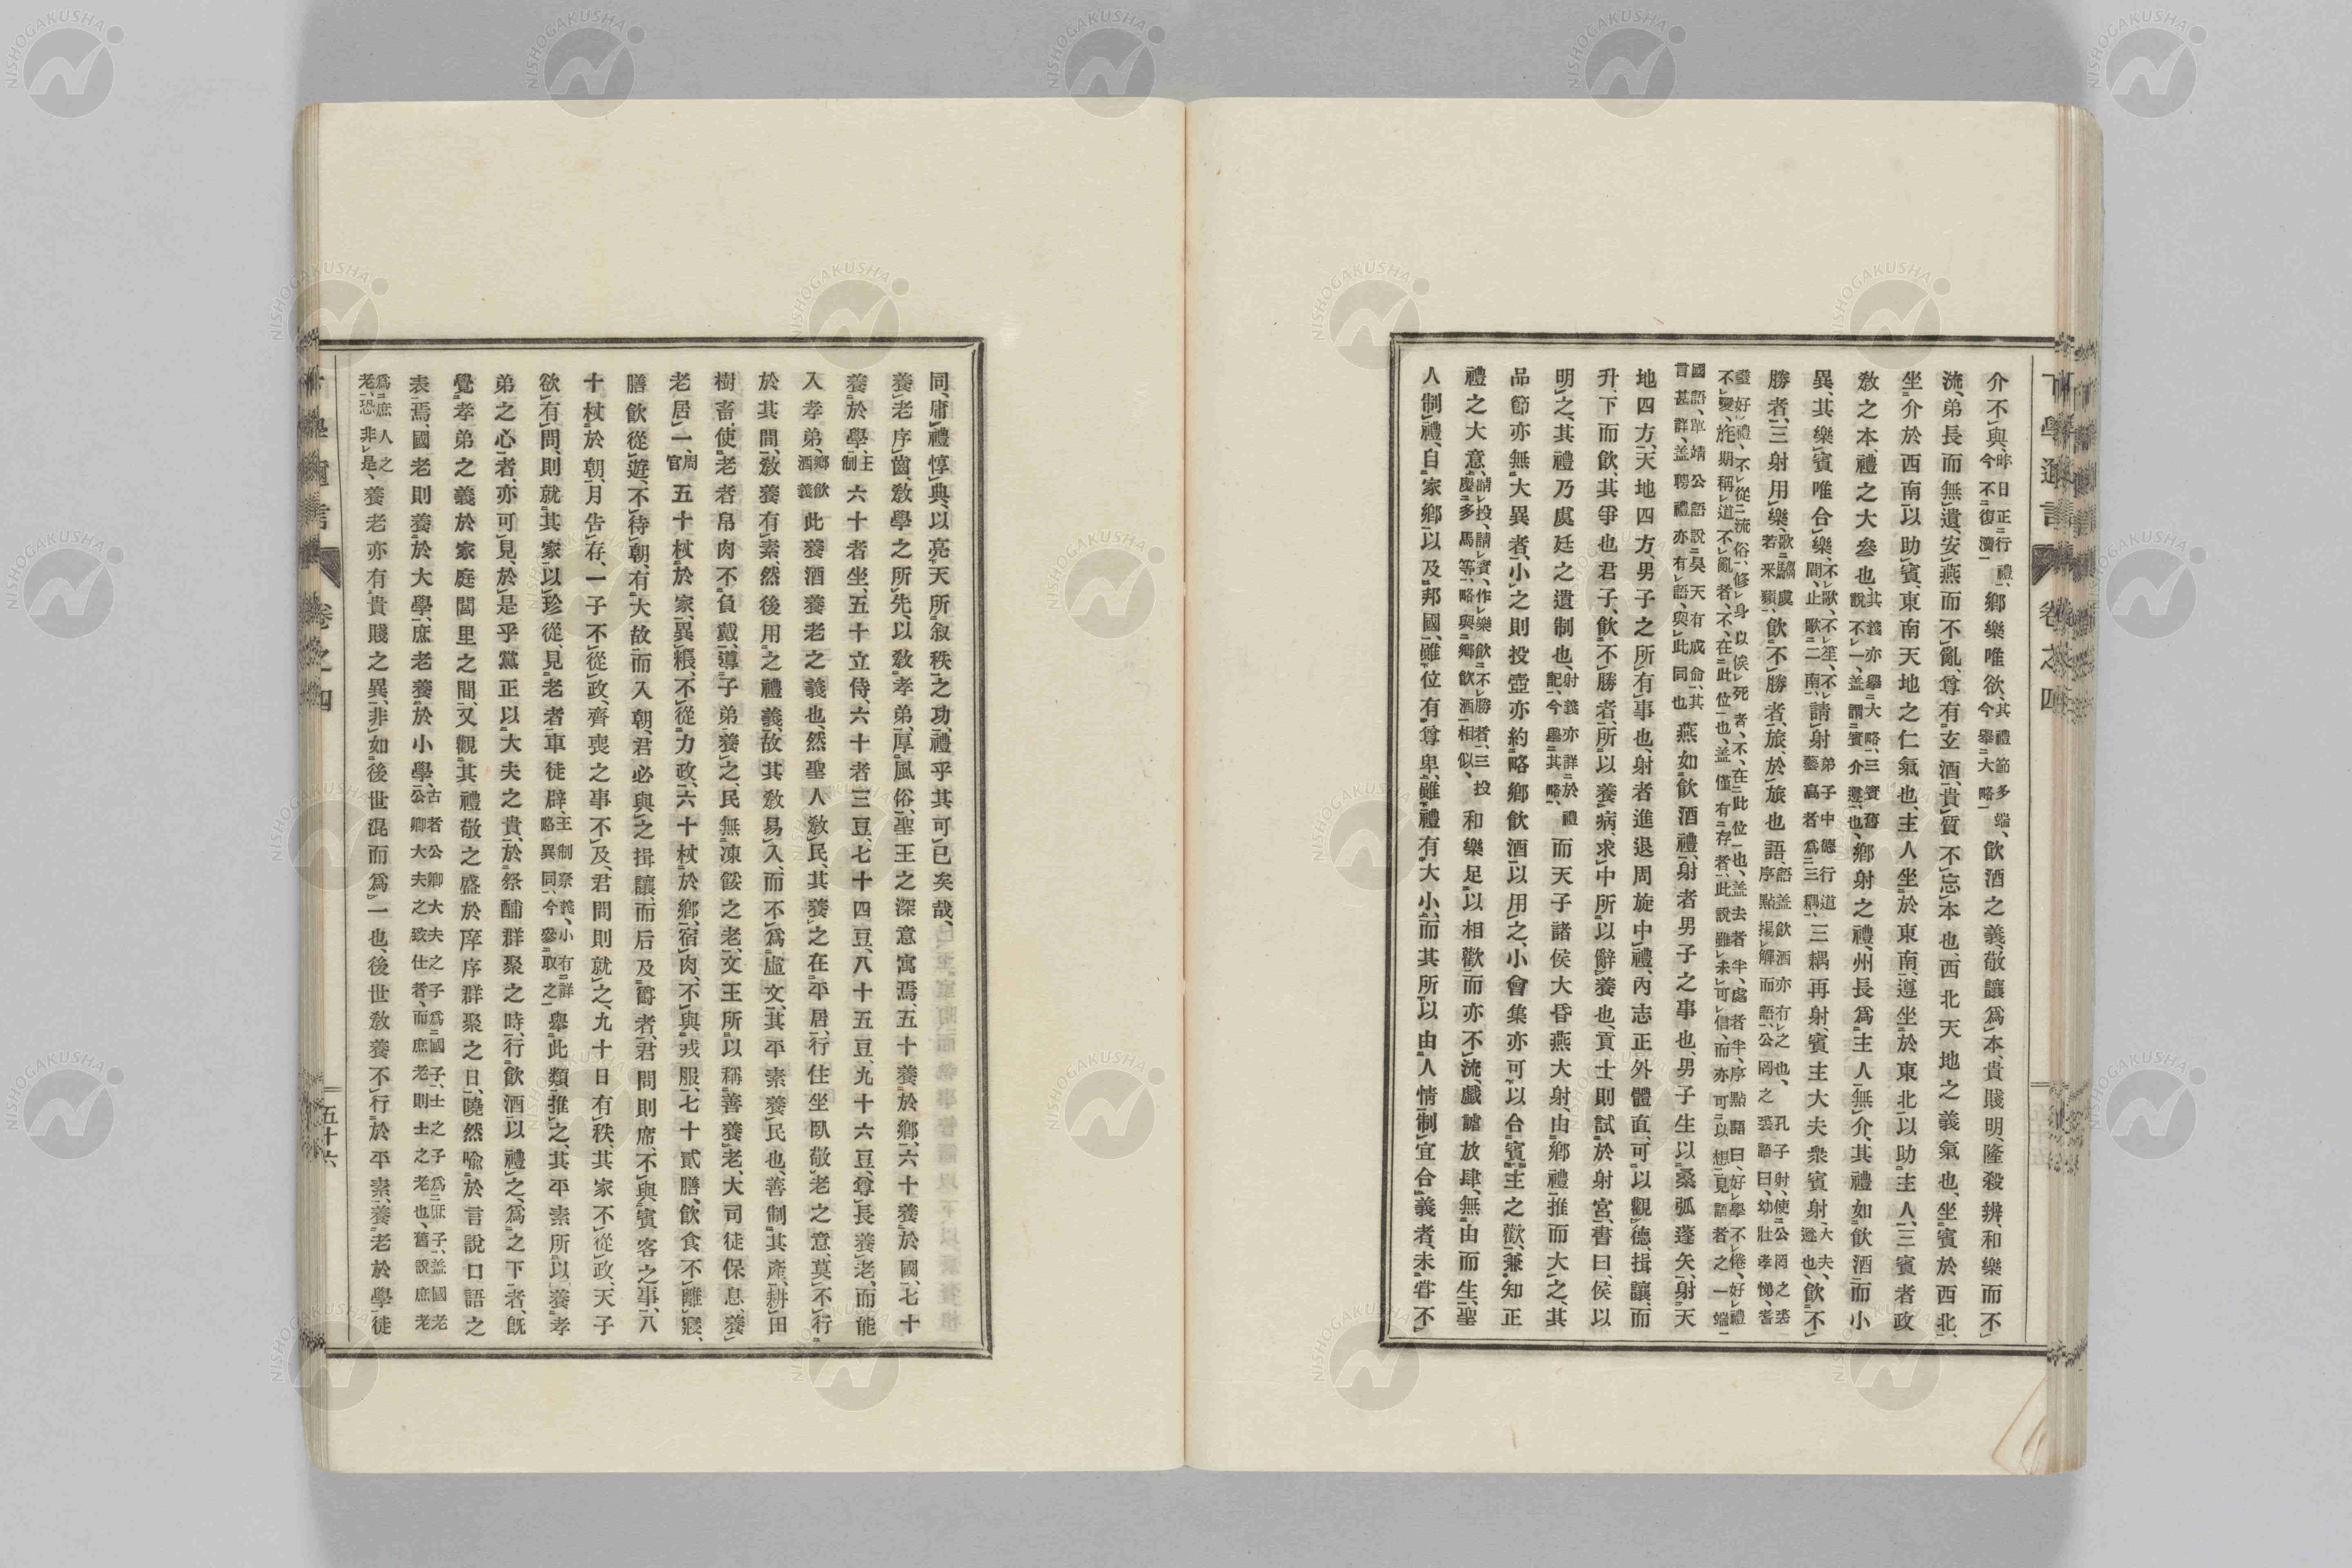 下學邇言 卷之四
介不與、昨日正行禮、今不復瀆、鄉樂唯欲、其禮節多端、今舉大略、飲酒之義、敬讓爲本、貴賤明、隆殺辨、和樂而不
流、弟長而無遺、安燕而不亂、尊有玄酒、貴質不忘本也、西北天地之義氣也、坐賓於西北、
坐介於西南、以助賓、東南天地之仁氣也、主人坐於東南、遵坐於東北、以助主人、三賓者政
敎之本、禮之大參也、其義亦舉大略、三賓舊說不一、蓋謂賓介遵也、鄉射之禮、州長爲主人、無介、其禮如飲酒而小
異、其樂賓唯合樂、不歌、不笙、不間、止歌二南、請射、弟子中德行道藝高者爲三耦、三耦再射、賓主大夫衆賓射、大夫遵也、飲不
勝者、三射用樂、歌騶虞若采蘋、飲不勝者、旅、於旅也語、語蓋飲酒亦有之也、孔子射、使公罔之裘序點揚觶而語、公罔之裘語曰、幼壯孝悌、耆
耋好禮、不從流俗、修身以俟死者、不、在此位也、蓋去者半、處者半、序點語曰、好學不倦、好禮不變、旄期稱道不亂者、不、在此位也、蓋僅有存者、此說雖未可信、而亦可以想見語者之一端
國語、單靖公語說昊天有成命、其言甚詳、蓋聘禮亦有語、與此同也、燕如飲酒禮、射者男子之事也、男子生以桑弧蓬矢、射天
地四方、天地四方、男子之所有事也、射者進退周旋中禮、內志正外體直、可以觀德、揖讓而
升、下而飲、其爭也君子、飲不勝者、所以養病、求中所以辭養也、貢士則試於射宮、書曰、侯以
明之、其禮乃虞廷之遺制也、射義亦詳於禮記、今舉其略、而天子諸侯大昏燕大射、由鄉禮推而大之、其
品節亦無大異者、小之則投壺亦約略鄉飲酒以用之、小會集亦可以合賓主之歡、兼知正
禮之大意、請投、請賓、作樂飲不勝者、三投慶多馬等、略與鄉飲酒相似、和樂足以相歡、而亦不流、戲謔放肆、無由而生、聖
人制禮、自家鄉以及邦國、雖位有尊卑、雖禮有大小、而其所以由人情制宜合義者、未嘗不
同、庸禮惇典、以亮天所敍秩之功、禮乎其可已矣哉、
養老序齒、敎學之所先、以敎孝弟、厚風俗、聖王之深意寓焉、五十養於鄉、六十養於國、七十
養於學、王制六十者坐、五十立侍、六十者三豆、七十四豆、八十五豆、九十六豆、尊長養老、而能
入孝弟、鄉飲酒義此養酒養老之義也、然聖人敎民、其養之在平居、行住坐臥敬老之意、莫不行
於其間、敎養有素、然後用之禮義、故其敎易入、而不爲虛文、其平素養民也、善制其產、耕田
樹畜、使老者帛肉不負戴、導子弟養之、民無凍餒之老、文王所以稱善養老、大司徒保息、養
老居一、周官五十杖於家、異粻、不從力政、六十杖於鄉、宿肉、不與戎服、七十貳膳、飲食不離寢、
膳飲從遊、不待朝、有大故而入朝、君必與之揖讓、而后及爵者、君問則席、不與賓客之事、八
十杖於朝、月告存、一子不從政、齊喪之事不及、君問則就之、九十日有秩、其家不從政、天子
欲有問、則就其家、以珍從、見老者車徒辟、王制祭義、小有詳略異同、今參取之、舉此類推之、其平素所以養孝
弟之心者、亦可見、於是乎黨正以大夫之貴、於祭酺群聚之時、行飲酒以禮之、爲之下者、旣
覺孝弟之義於家庭閭里之間、又觀其禮敬之盛於庠序群聚之日、曉然喩於言說口語之
表焉、國老則養於大學、庶老養於小學、古者公卿大夫之子爲國子、士之子爲庶子、蓋國老公卿大夫之致仕者、而庶老則士之老也、舊說庶老
爲庶人之老、恐非是、養老亦有貴賤之異、非如後世混而爲一也、後世敎養不行於平素、養老於學、徒
下學邇言 卷之四 五十六